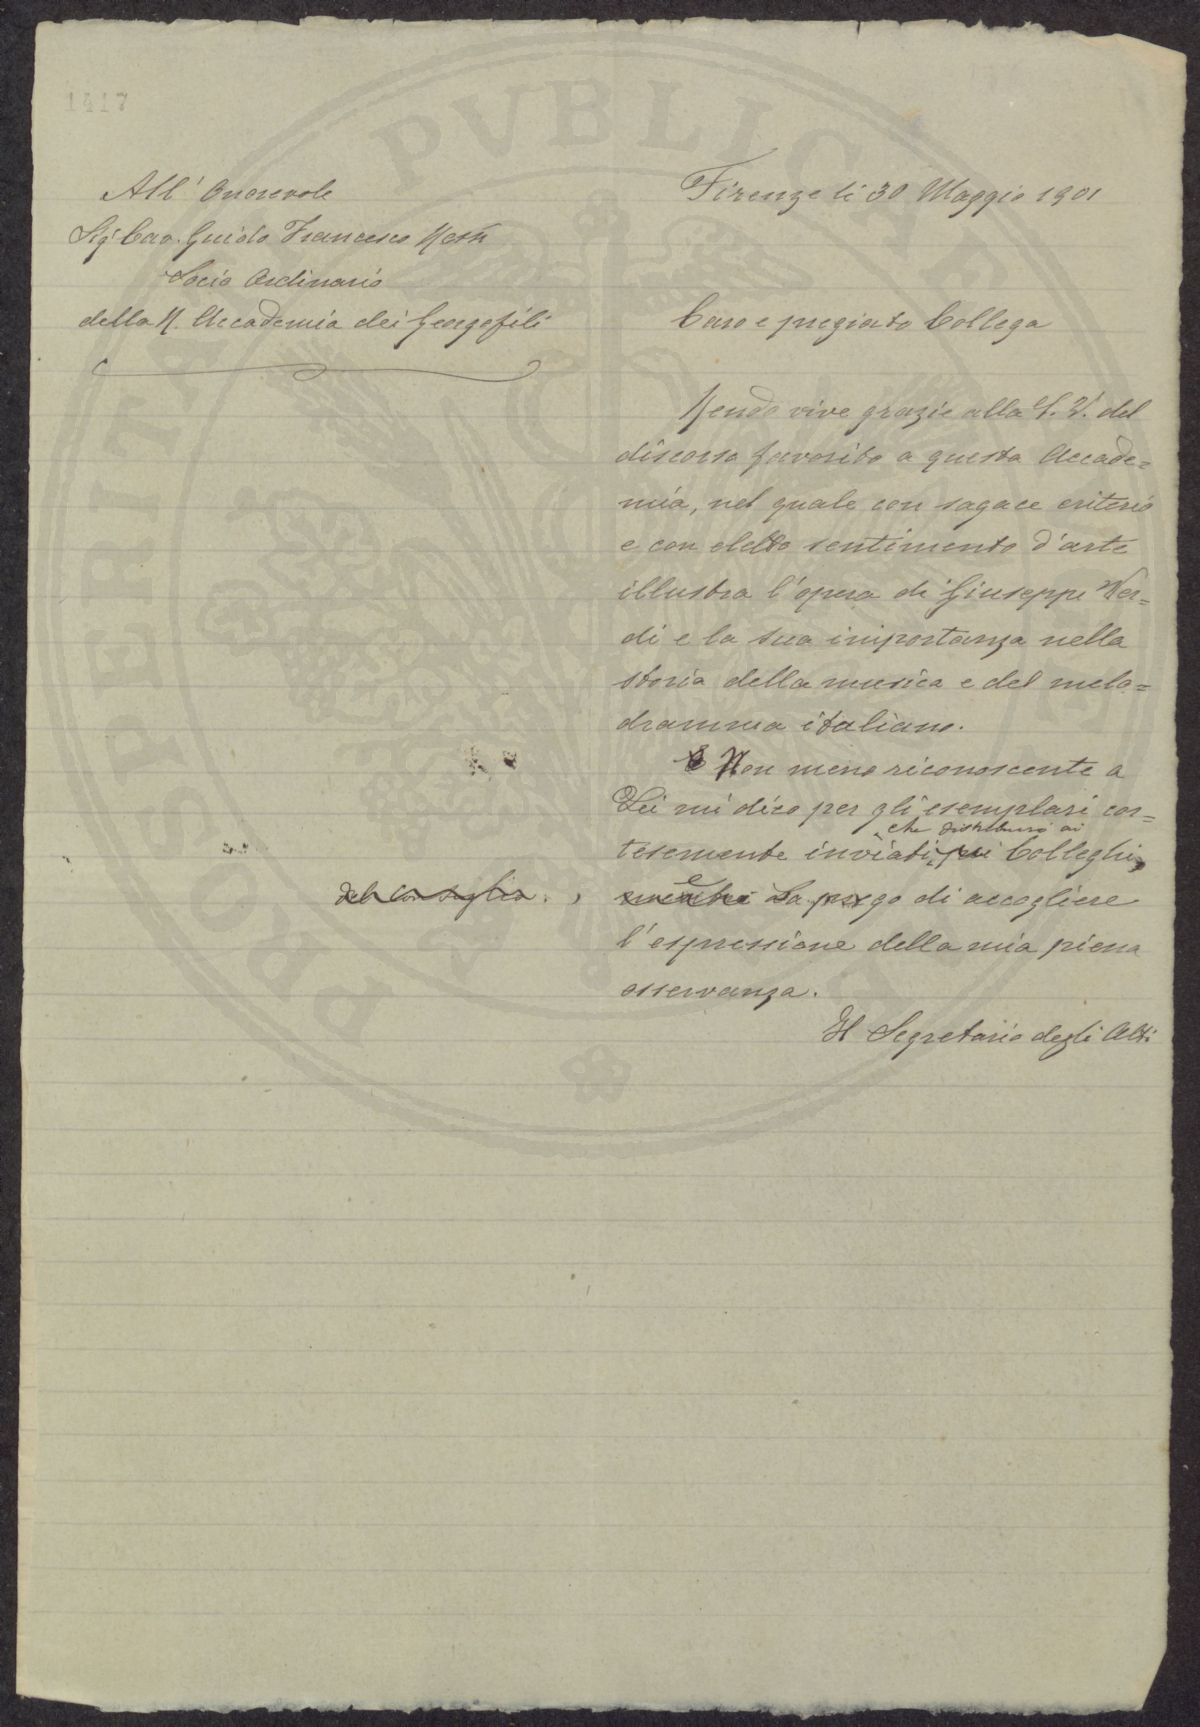 1417
All' Onorevole
Sig.r Cav. Guido Francesco
Socio Ordinario
della R. Accademia dei Georgofili
Firenze li 30 Maggio 1901
Caro e pregiato Collega
Rendo vive grazie alla S. V. del
discorso favorito a questa Accade=
mia, nel quale con sagace criterio
e con eletto sentimento d'arte
illustra l'opera di Giuseppe Ver=
di e la sua importanza nella
storia della musica e del melo=
dramma italiano.
Non meno riconoscente a
Lei mi dico per gli esemplari cor=
che distribuirò ai
tesemente inviati, pei Colleghi,
del Consiglio.
e La prego di accogliere
l'espressione della mia piena
osservanza.
Il Segretario degli Atti
PVBLICAE